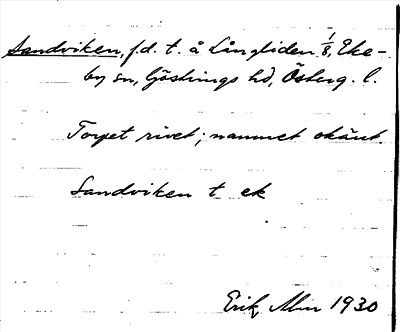 Sandviken, f.d. t. å Långliden 1/8, Eke-
by sn, Göstrings hd, Österg. l.
Torpet rivet; namnet okänt.
Sandviken t ek
Erik Alm 1930